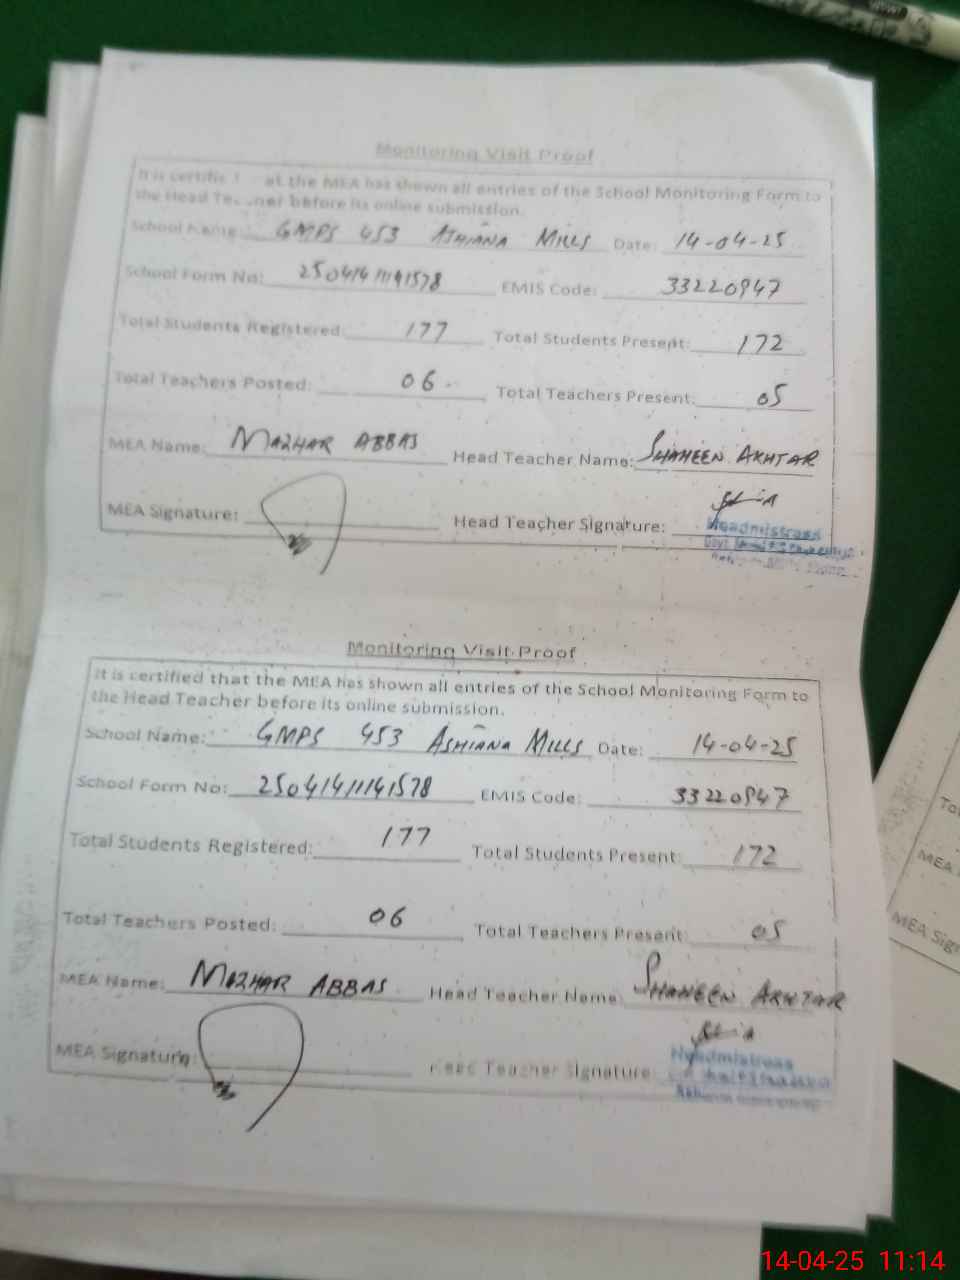 Monitoring Visit Proof
It is certifie at the MEA has shown all entries of the School Monitoring Form to
the Head before its online submission.
School Name: GMPS 453 ASHIANA MILLS Date: 14-04-25
School Form No: 25041411141578 EMIS Code: 33220947
Total Students Registered: 177 Total Students Present: 172
Total Teachers Posted: 06 Total Teachers Present: 05
MEA Name: MAZHAR ABBAS Head Teacher Name: SHAHEEN AKHTAR
MEA Signature: Head Teacher Signature:
Headmistress
Govt
Monitoring Visit Proof
It is certified that the MEA has shown all entries of the School Monitoring Form to
the Head Teacher before its online submission.
School Name: GMPS 453 ASHIANA MILLS Date: 14-04-25
School Form No: 25041411141578 EMIS Code: 33220947
Total Students Registered: 177 Total Students Present: 172
Total Teachers Posted: 06 Total Teachers Present: 05
MEA Name: MAZHAR ABBAS Head Teacher Name SHAHEEN AKHTAR
MEA Signature: Head Teacher Signature:
Headmistress
MEA
MEA Sig
14-04-25 11:14